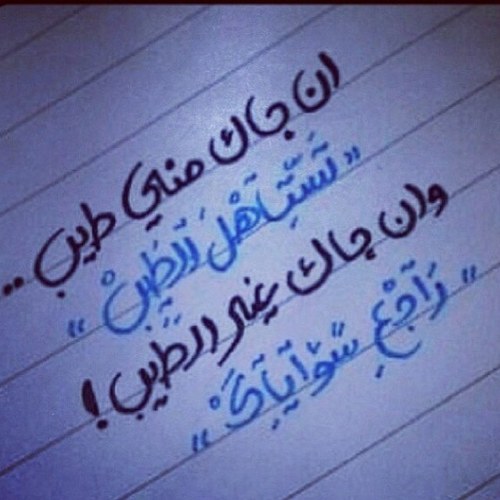 ان جاك مني طيب ..
"تَسِّتَآهَلَ آلَطَيِّبْ"
وان جاك غير الطيب !
"رَآجَعِ سًوْآيَآكَ"